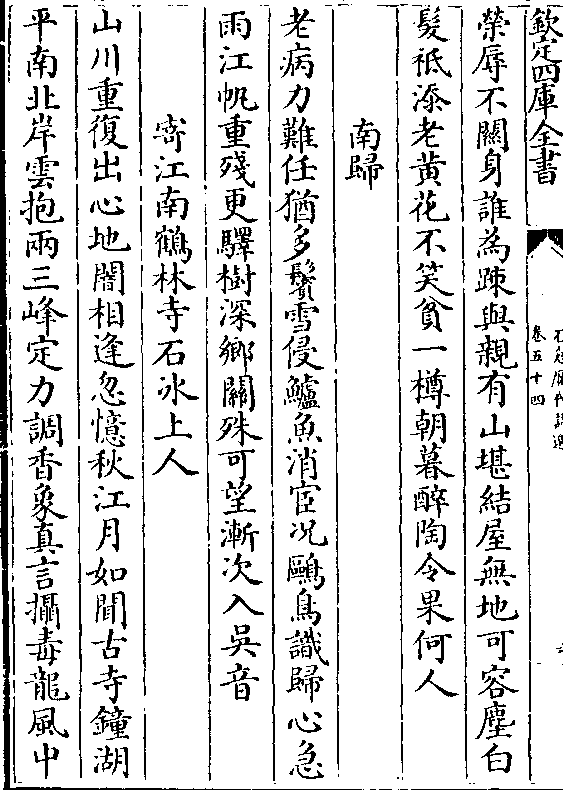 欽定四庫全書
卷五十四
榮辱不關身誰為疎與親有山堪結屋無地可容塵白
髮祗添老黄花不笑貧一樽朝暮醉陶令果何人
南歸
老病力難任猶多鬢雪侵鱸魚消宦况鷗鳥識歸心急
雨江帆重殘更驛樹深鄉關殊可望漸次入吳音
寄江南鶴林寺石冰上人
山川重復出心地闇相逢忽憶秋江月如聞古寺鐘湖
平南北岸雲抱兩三峰定力調香象真言攝毒龍風中